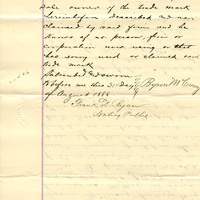 sole owner of the trade mark
hereinbefore described and now
claimed by said firm and he
knows of no person, firm or
Corporation now using or that
has ever used or claimed said
trade mark
Subscribed & sworn
before me this 31st day
of August 1888
Byron McCurry
Frank D. Ryan
Notary Public